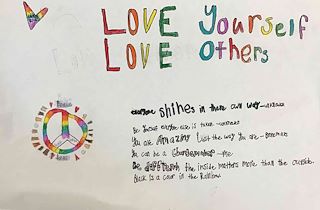 LOVE Yourself
LOVE Others
everyone shines in there own way-unknown
Be yourself everyone else is taken -unknown
You are Amazing Just the way You are -Brunomars
You can be a -me
Be different the inside matters more than the outside.
Black is a color in the Rainbow